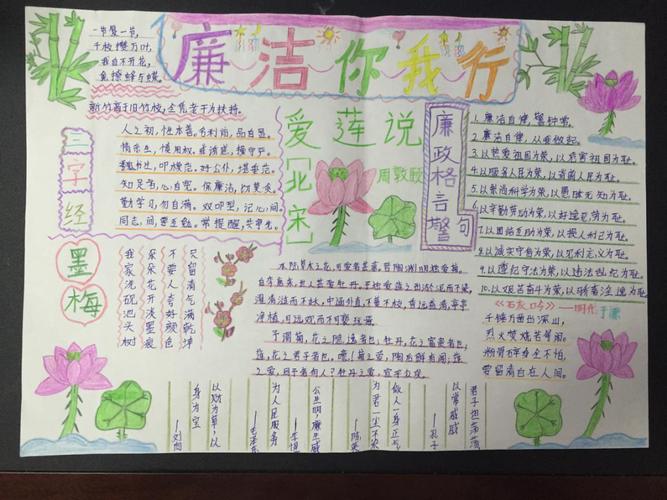 廉洁你我行
一节复一节,
千枝攒万叶,
我自不开花,
免撩蜂与蝶。
新竹高于旧竹枝,全凭老干为扶持。
三字经
人之初,性本善。名利前,品自显。
墨梅
我家洗砚池头树
朵朵花开淡墨痕
不要人夸颜色好
只留清气满乾坤
爱莲说
[北宋]
周敦颐
水陆草木之花,可爱者甚蕃。晋陶渊明独爱菊。
自李唐来,世人甚爱牡丹。予独爱莲之出淤泥而不染,
濯清涟而不妖,中通外直,不蔓不枝,香远益清,亭亭
净植,可远观而不可亵玩焉。
予谓菊,花之隐逸者也;牡丹,花之富贵者也;
莲,花之君子者也。噫!菊之爱,陶后鲜有闻;莲
之爱,同予者何人?牡丹之爱,宜乎众矣。
廉政格言警句
1.廉洁自律,警钟鸣。
2.廉洁自律,从我做起。
3.以热爱祖国为荣,以危害祖国为耻。
4.以服务人民为荣,以背离人民为耻。
5.以崇尚科学为荣,以愚昧无知为耻。
6.以辛勤劳动为荣,以好逸恶劳为耻。
7.以团结互助为荣,以损人利己为耻。
8.以诚实守信为荣,以见利忘义为耻。
9.以遵纪守法为荣,以违法乱纪为耻。
10.以艰苦奋斗为荣,以骄奢淫逸为耻。
《石灰吟》——明代 于谦
千锤万凿出深山,
烈火焚烧若等闲。
粉骨碎身全不怕,
要留清白在人间。
君子坦荡荡
小人常戚戚
——孔子
做人一身正气
为官一尘不染
——陈毅
公生明,廉生威
——李惺
为人民服务
——毛泽东
以财为草,以
身为宝
——刘向